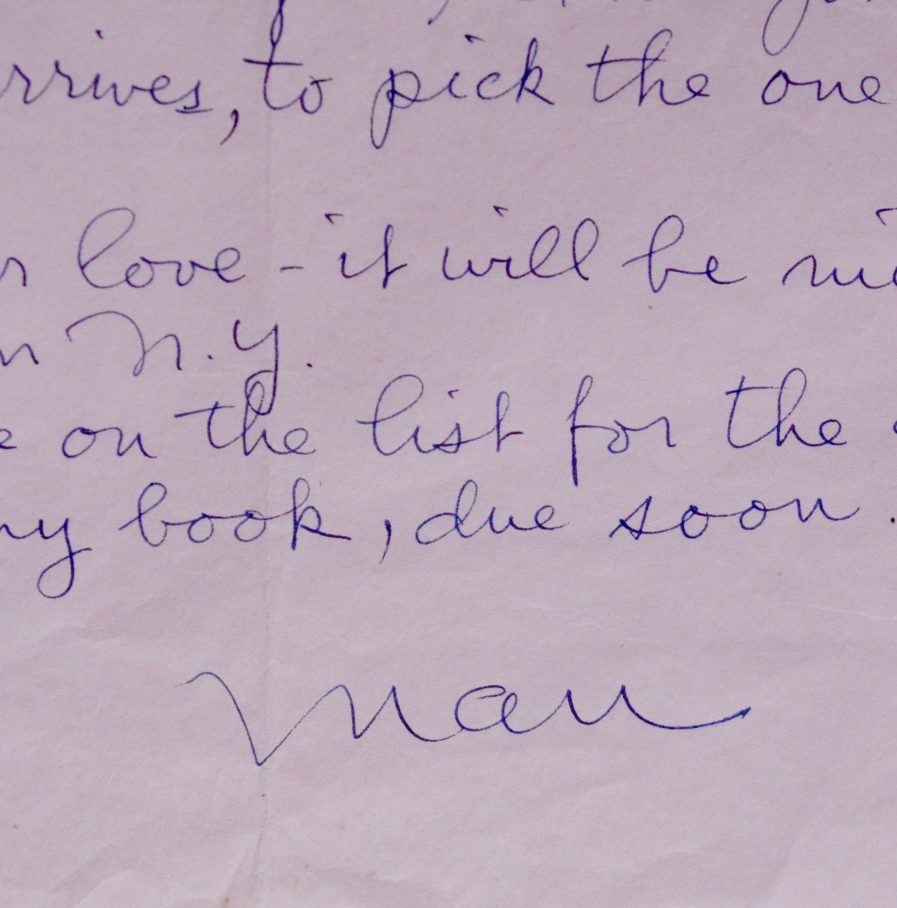 rrives, to pick the one
r love - it will be ni
n N.Y.
e on the list for the
my book, due soon.
Man